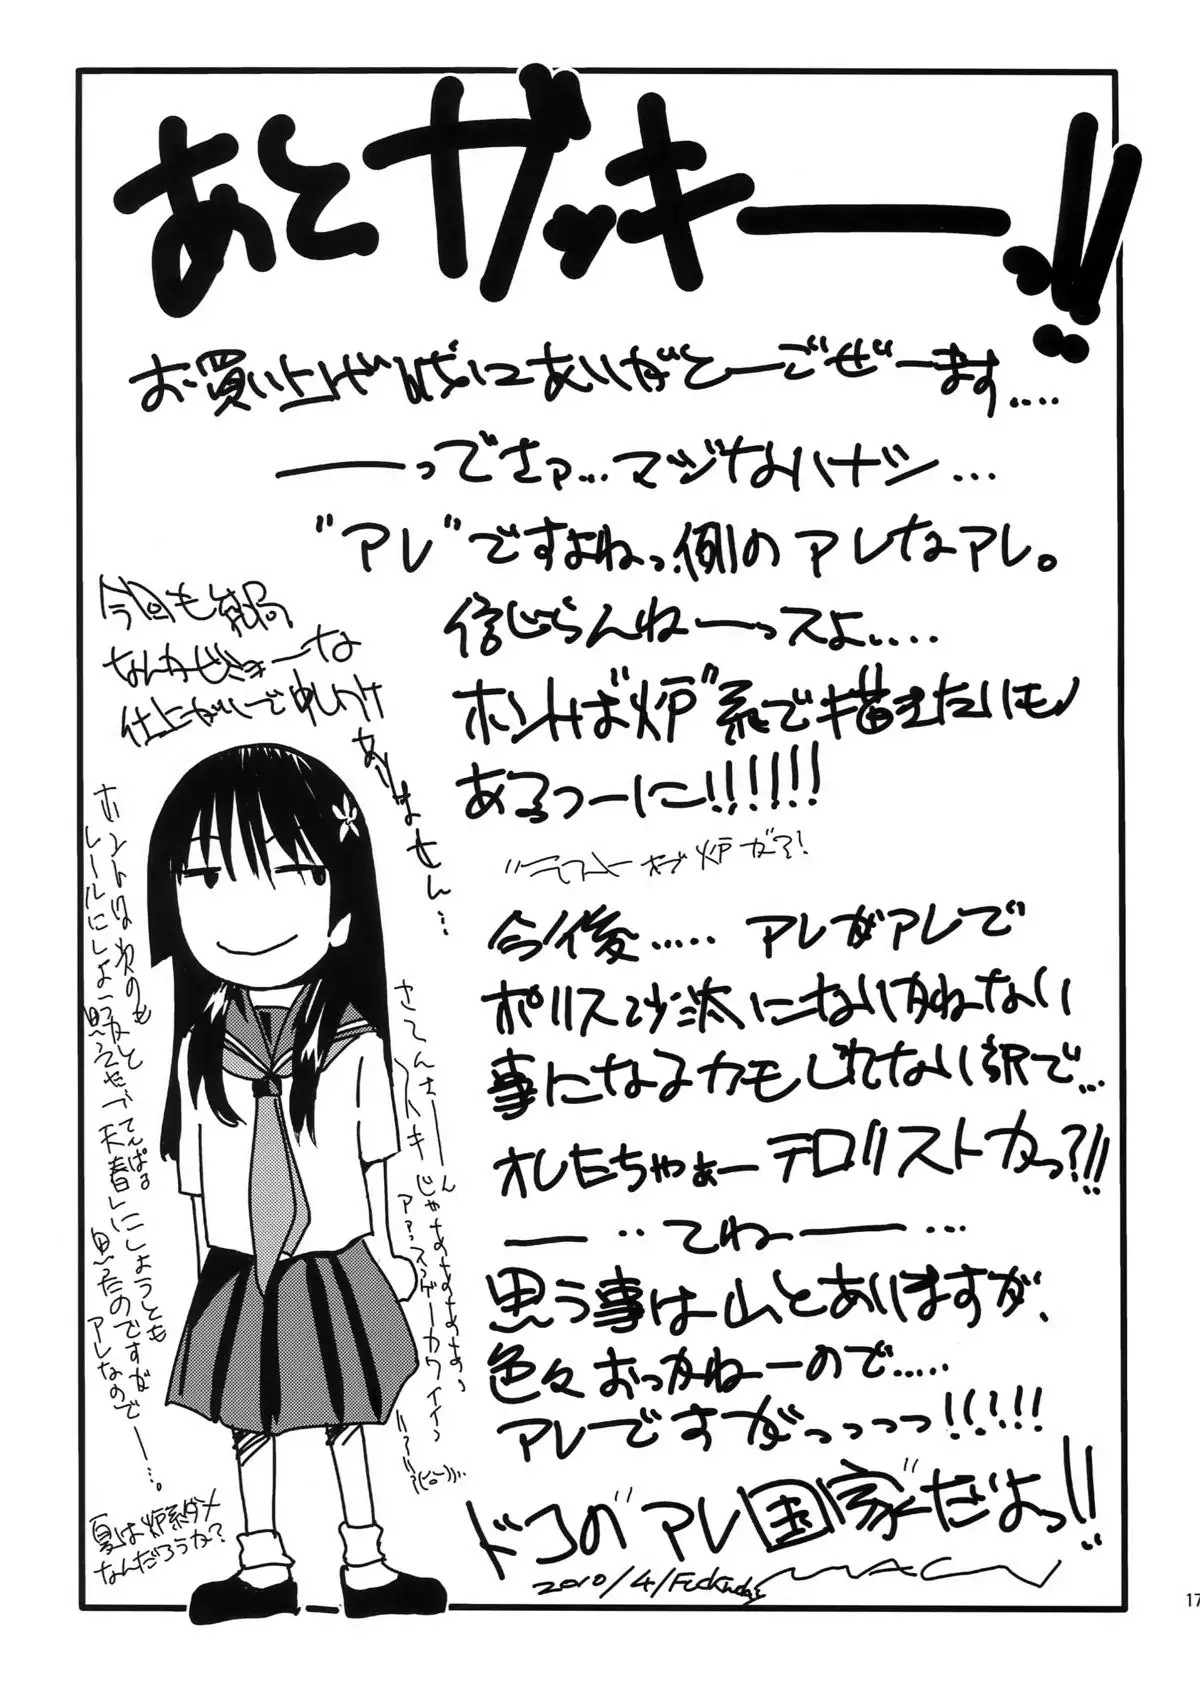 あとガッキーーっ!!
お買い上げげにありがとーごぜーます....
――ってさァ...マジなハナシ...
"アレ"ですよねっ、例のアレなアレ。
信じらんねーっスよ....
ホントは"炉"系で描きたいモノ
あるつーに!!!!!!
ラストオブ炉が?!
今後.....アレがアレで
ポリス沙汰になりかねない
事になるカモしれない訳で...
オレたちゃぁーテロリストかっ?!!
――‥てねーー...
思う事は山とありますが、
色々おっかねーので.....
アレですがっっっっ!!!!!
ドコの"アレ国家"だよっ!!
2010/4/
今回も結局
なんかぜーな
仕上がりで申しワケ
ありません...
ホントは次のも
レールにしようかと
思っ
てんぱる
天春
にしようとも
思ったのですが
アレなので―...。
さてんさーん
じゃ
スゲーカワイイっ
夏は炉系ダメ
なんだろうか?
17